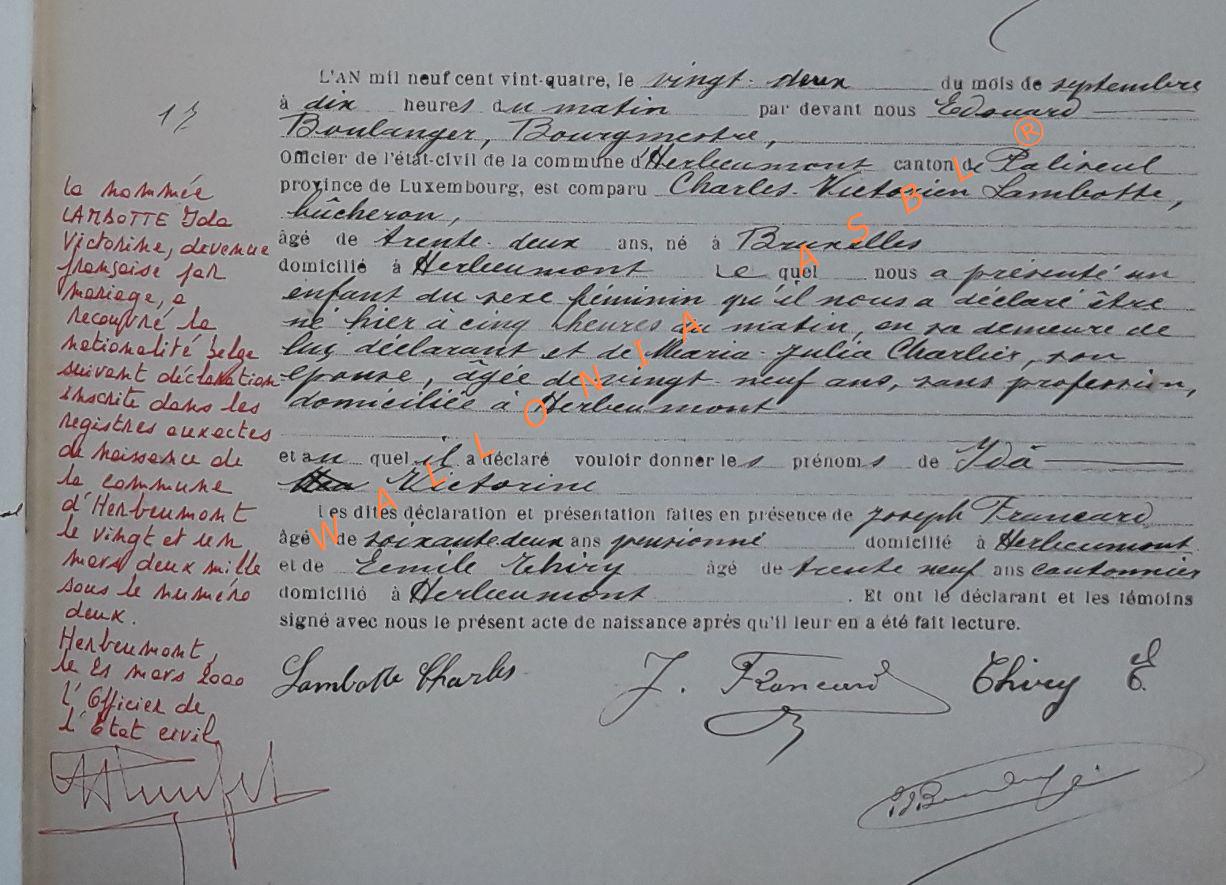 L'AN mil neuf cent vint-quatre, le vingt-deux du mois de septembre
à dix heures du matin par devant nous Edouard
Boulanger, Bourgmestre,
Officier de l'état-civil de la commune d'Herbeumont canton de Paliseul
province de Luxembourg, est comparu Charles-Victorien Lambotte,
bûcheron,
âgé de trente-deux ans, né à Bruxelles
domicilié à Herbeumont Le quel nous a présenté un
enfant du sexe féminin qu'il nous a déclaré être
né hier à cinq heures du matin, en sa demeure de
lui déclarant et de Maria-Julia Charlier, son
épouse, âgée de vingt-neuf ans, sans profession,
domiciliée à Herbeumont
et au quel il a déclaré vouloir donner les prénoms de Ida
Victorine
Les dites déclaration et présentation faites en présence de Joseph Francard
âgé de soixante deux ans pensionné domicilié à Herbeumont
et de Eemile Thiry âgé de trente neuf ans cantonnier
domicilié à Herbeumont. Et ont le déclarant et les témoins
signé avec nous le présent acte de naissance après qu'il leur en a été fait lecture.
Lambotte Charles J. Francard Thiry E.
17
la nommée
LAMBOTTE Ida
Victorine, devenue
française par
mariage, a
recouvré la
nationalité belge
suivant déclaration
inscrite dans les
registres aux actes
de naissance de
la commune
d'Herbeumont
le vingt et un
mars deux mille
sous le numéro
deux.
Herbeumont,
le 21 mars 2000
l'Officier de
l'état civil,
WALLONIA ASBL ®